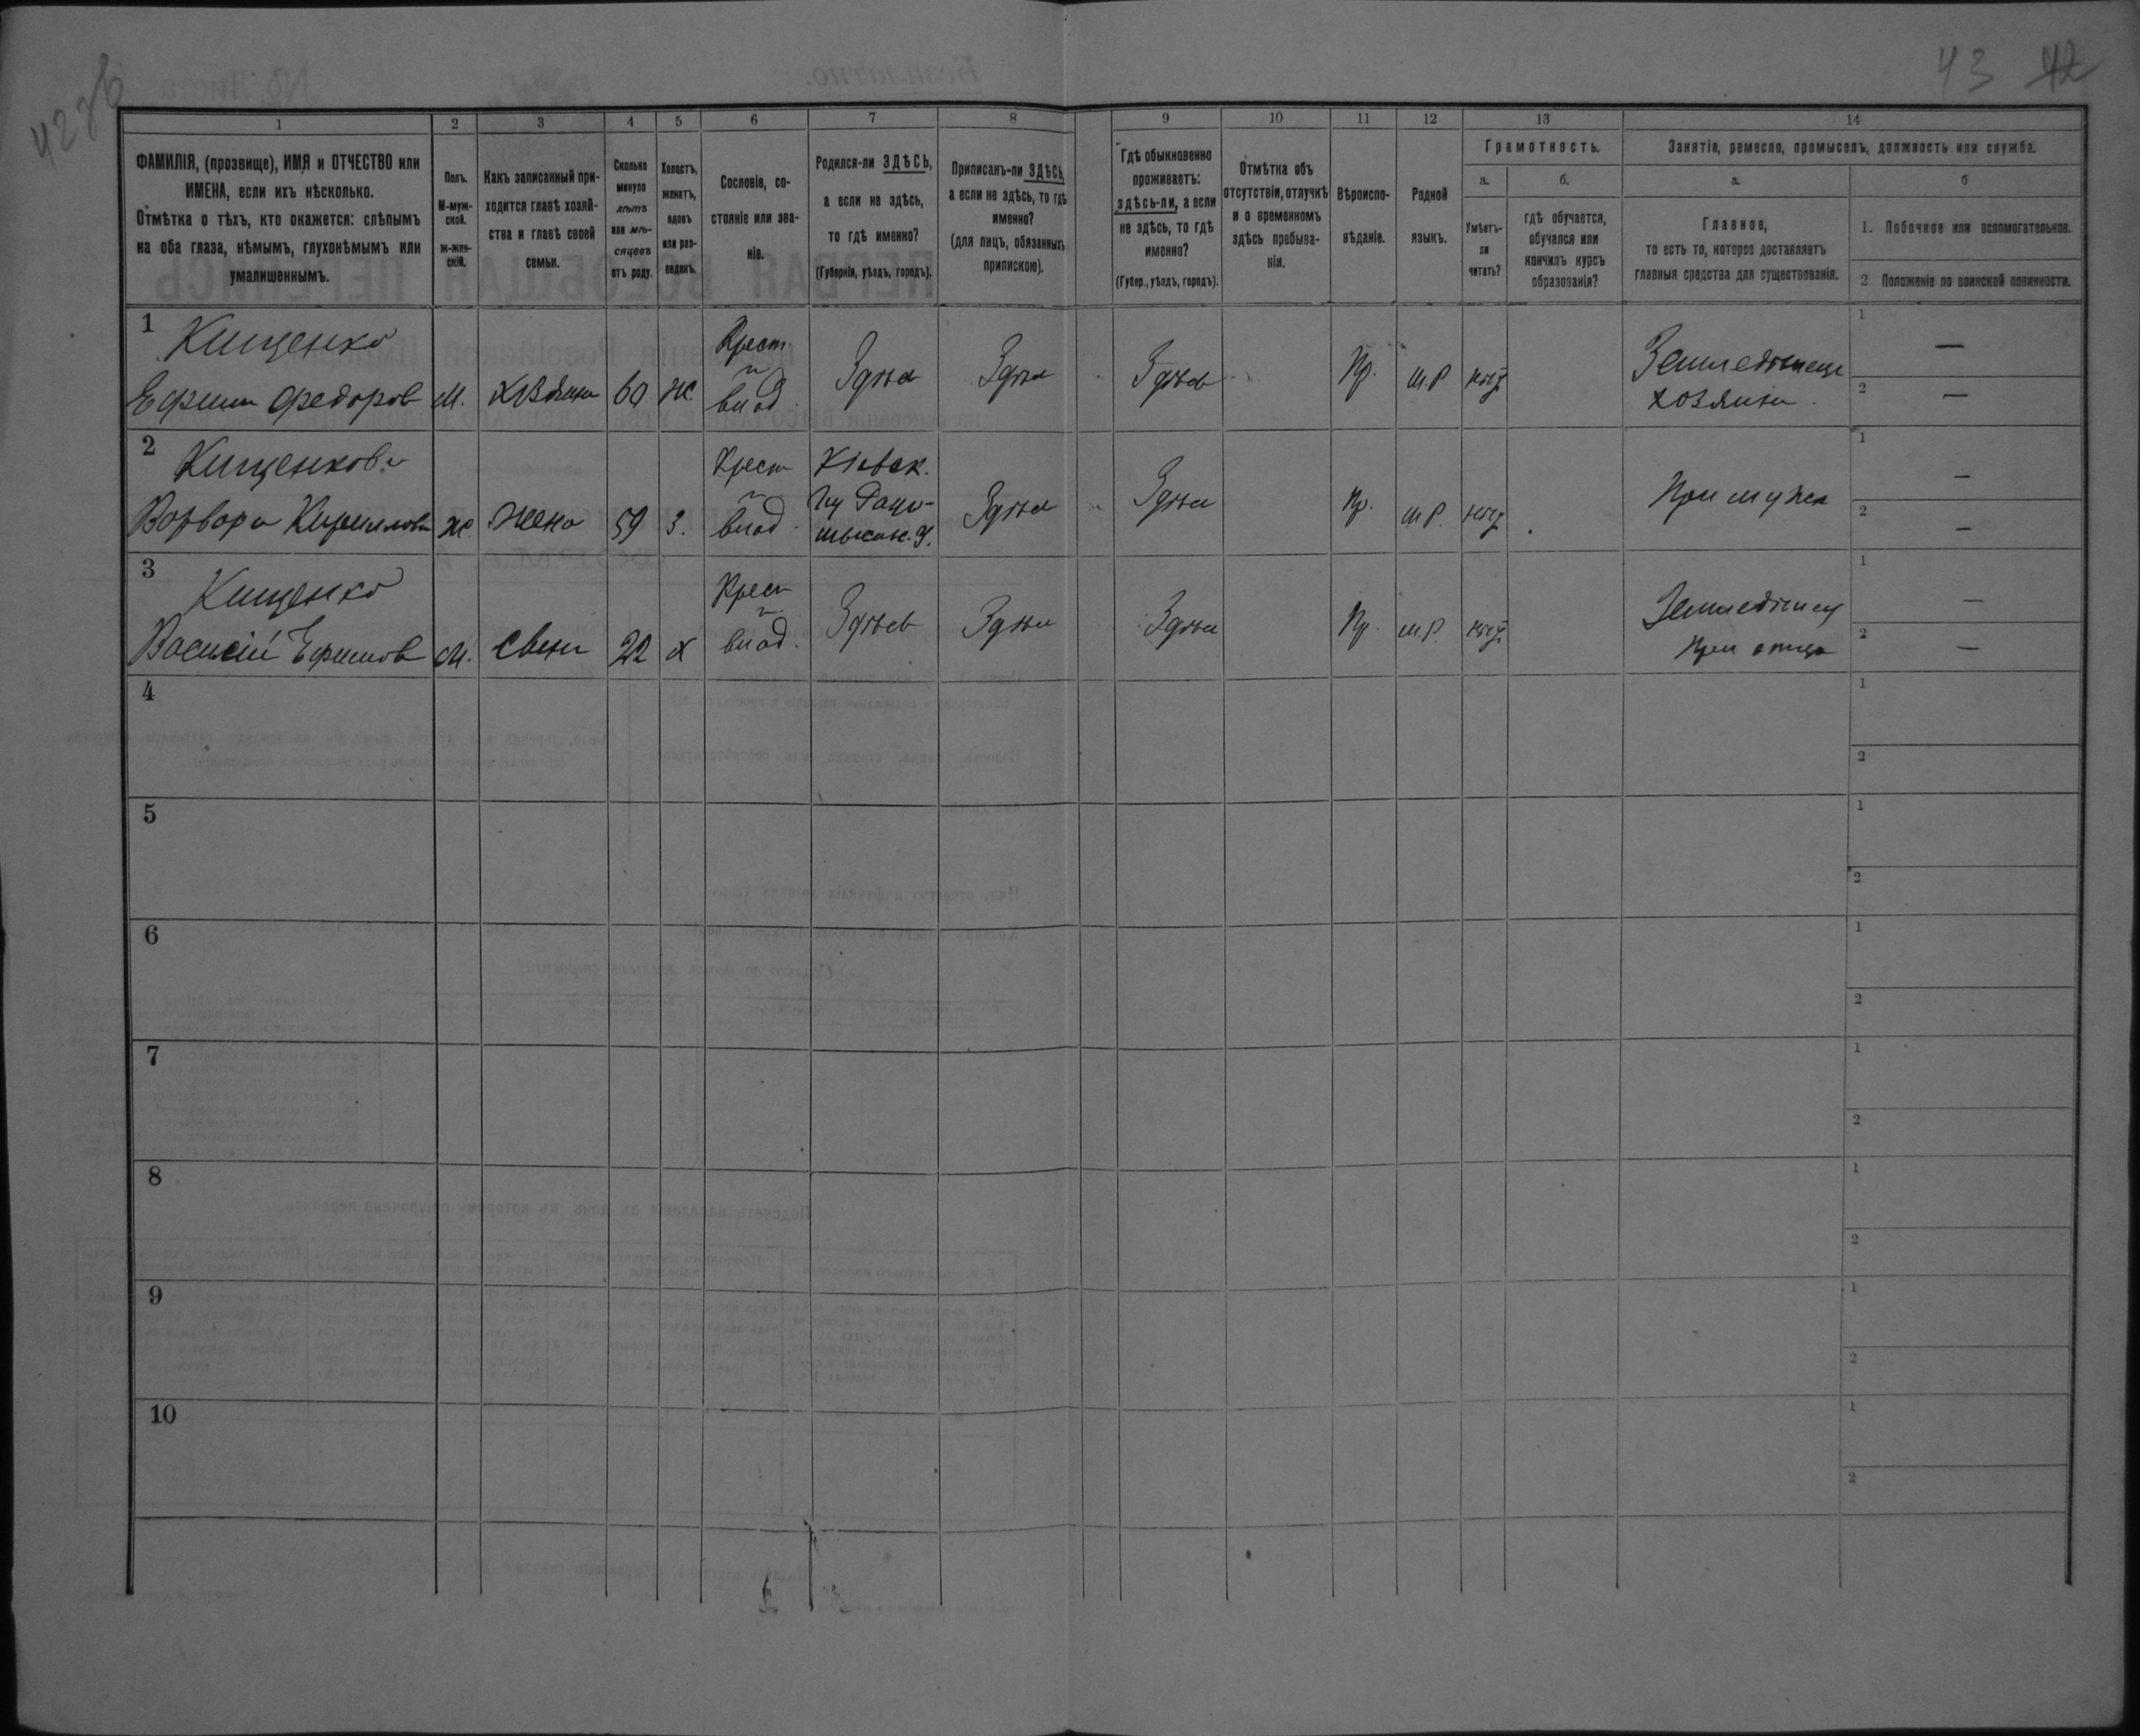 43 42
1 2 3 4 5 6 7 8 9 10 11 12 13 14
ФАМИЛІЯ, (прозвище), ИМЯ и ОТЧЕСТВО или
ИМЕНА, если ихъ нѣсколько.
Отмѣтка о тѣхъ, кто окажется: слѣпымъ
на оба глаза, нѣмымъ, глухонѣмымъ или
умалишеннымъ.
Полъ.
М-муж-
ской.
ж-жен-
скій.
Какъ записанный при-
ходится главѣ хозяй-
ства и главѣ своей
семьи.
Сколько
минуло
лѣтъ
или мѣ-
сяцевъ
отъ роду.
Холостъ,
женатъ,
вдовъ
или раз-
веденъ.
Сословіе, со-
стояніе или зва-
ніе.
Родился-ли ЗДѢСЬ,
а если не здѣсь,
то гдѣ именно?
(Губернія, уѣздъ, городъ).
Приписанъ-ли ЗДѢСЬ,
а если не здѣсь, то гдѣ
именно?
(для лицъ, обязанныхъ
припискою).
Гдѣ обыкновенно
проживаетъ:
здѣсь-ли, а если
не здѣсь, то гдѣ
именно?
(Губер., уѣздъ, городъ).
Отмѣтка объ
отсутствіи, отлучкѣ
и о временномъ
здѣсь пребыва-
ніи.
Вѣроиспо-
вѣданіе.
Родной
языкъ.
Грамотность.
а.
Умѣетъ-
ли
читать?
б.
гдѣ обучается,
обучался или
кончилъ курсъ
образованія?
Занятіе, ремесло, промыселъ, должность или служба.
а.
Главное,
то есть то, которое доставляетъ
главныя средства для существованія.
б
1. Побочное или вспомогательное.
2 Положеніе по воинской повинности.
1
Кищенко
Ефим Федоров
М.
хозяин
60
ж
Крест.
влад.
Здѣсь
Здѣсь
Здѣсь
Пр.
м.р
нѣт
Земледѣлец
хозяин.
1 —
2 —
2
Кищенкова
Варвара Кирилова
ж.
жена
59
з.
Крест
влад.
Кіевск.
Здѣсь
Здѣсь
Пр.
м.р.
нѣт
При мужѣ
1 —
2 —
3
Кищенко
Василій Ефимов
М.
Сын
22
х
Крест
влад.
Здѣсь
Здѣсь
Здѣсь
Пр.
м.р.
нѣт
Земледѣлец
при отцѣ
1 —
2 —
4
1
2
5
1
2
6
1
2
7
1
2
8
1
2
9
1
2
10
1
2